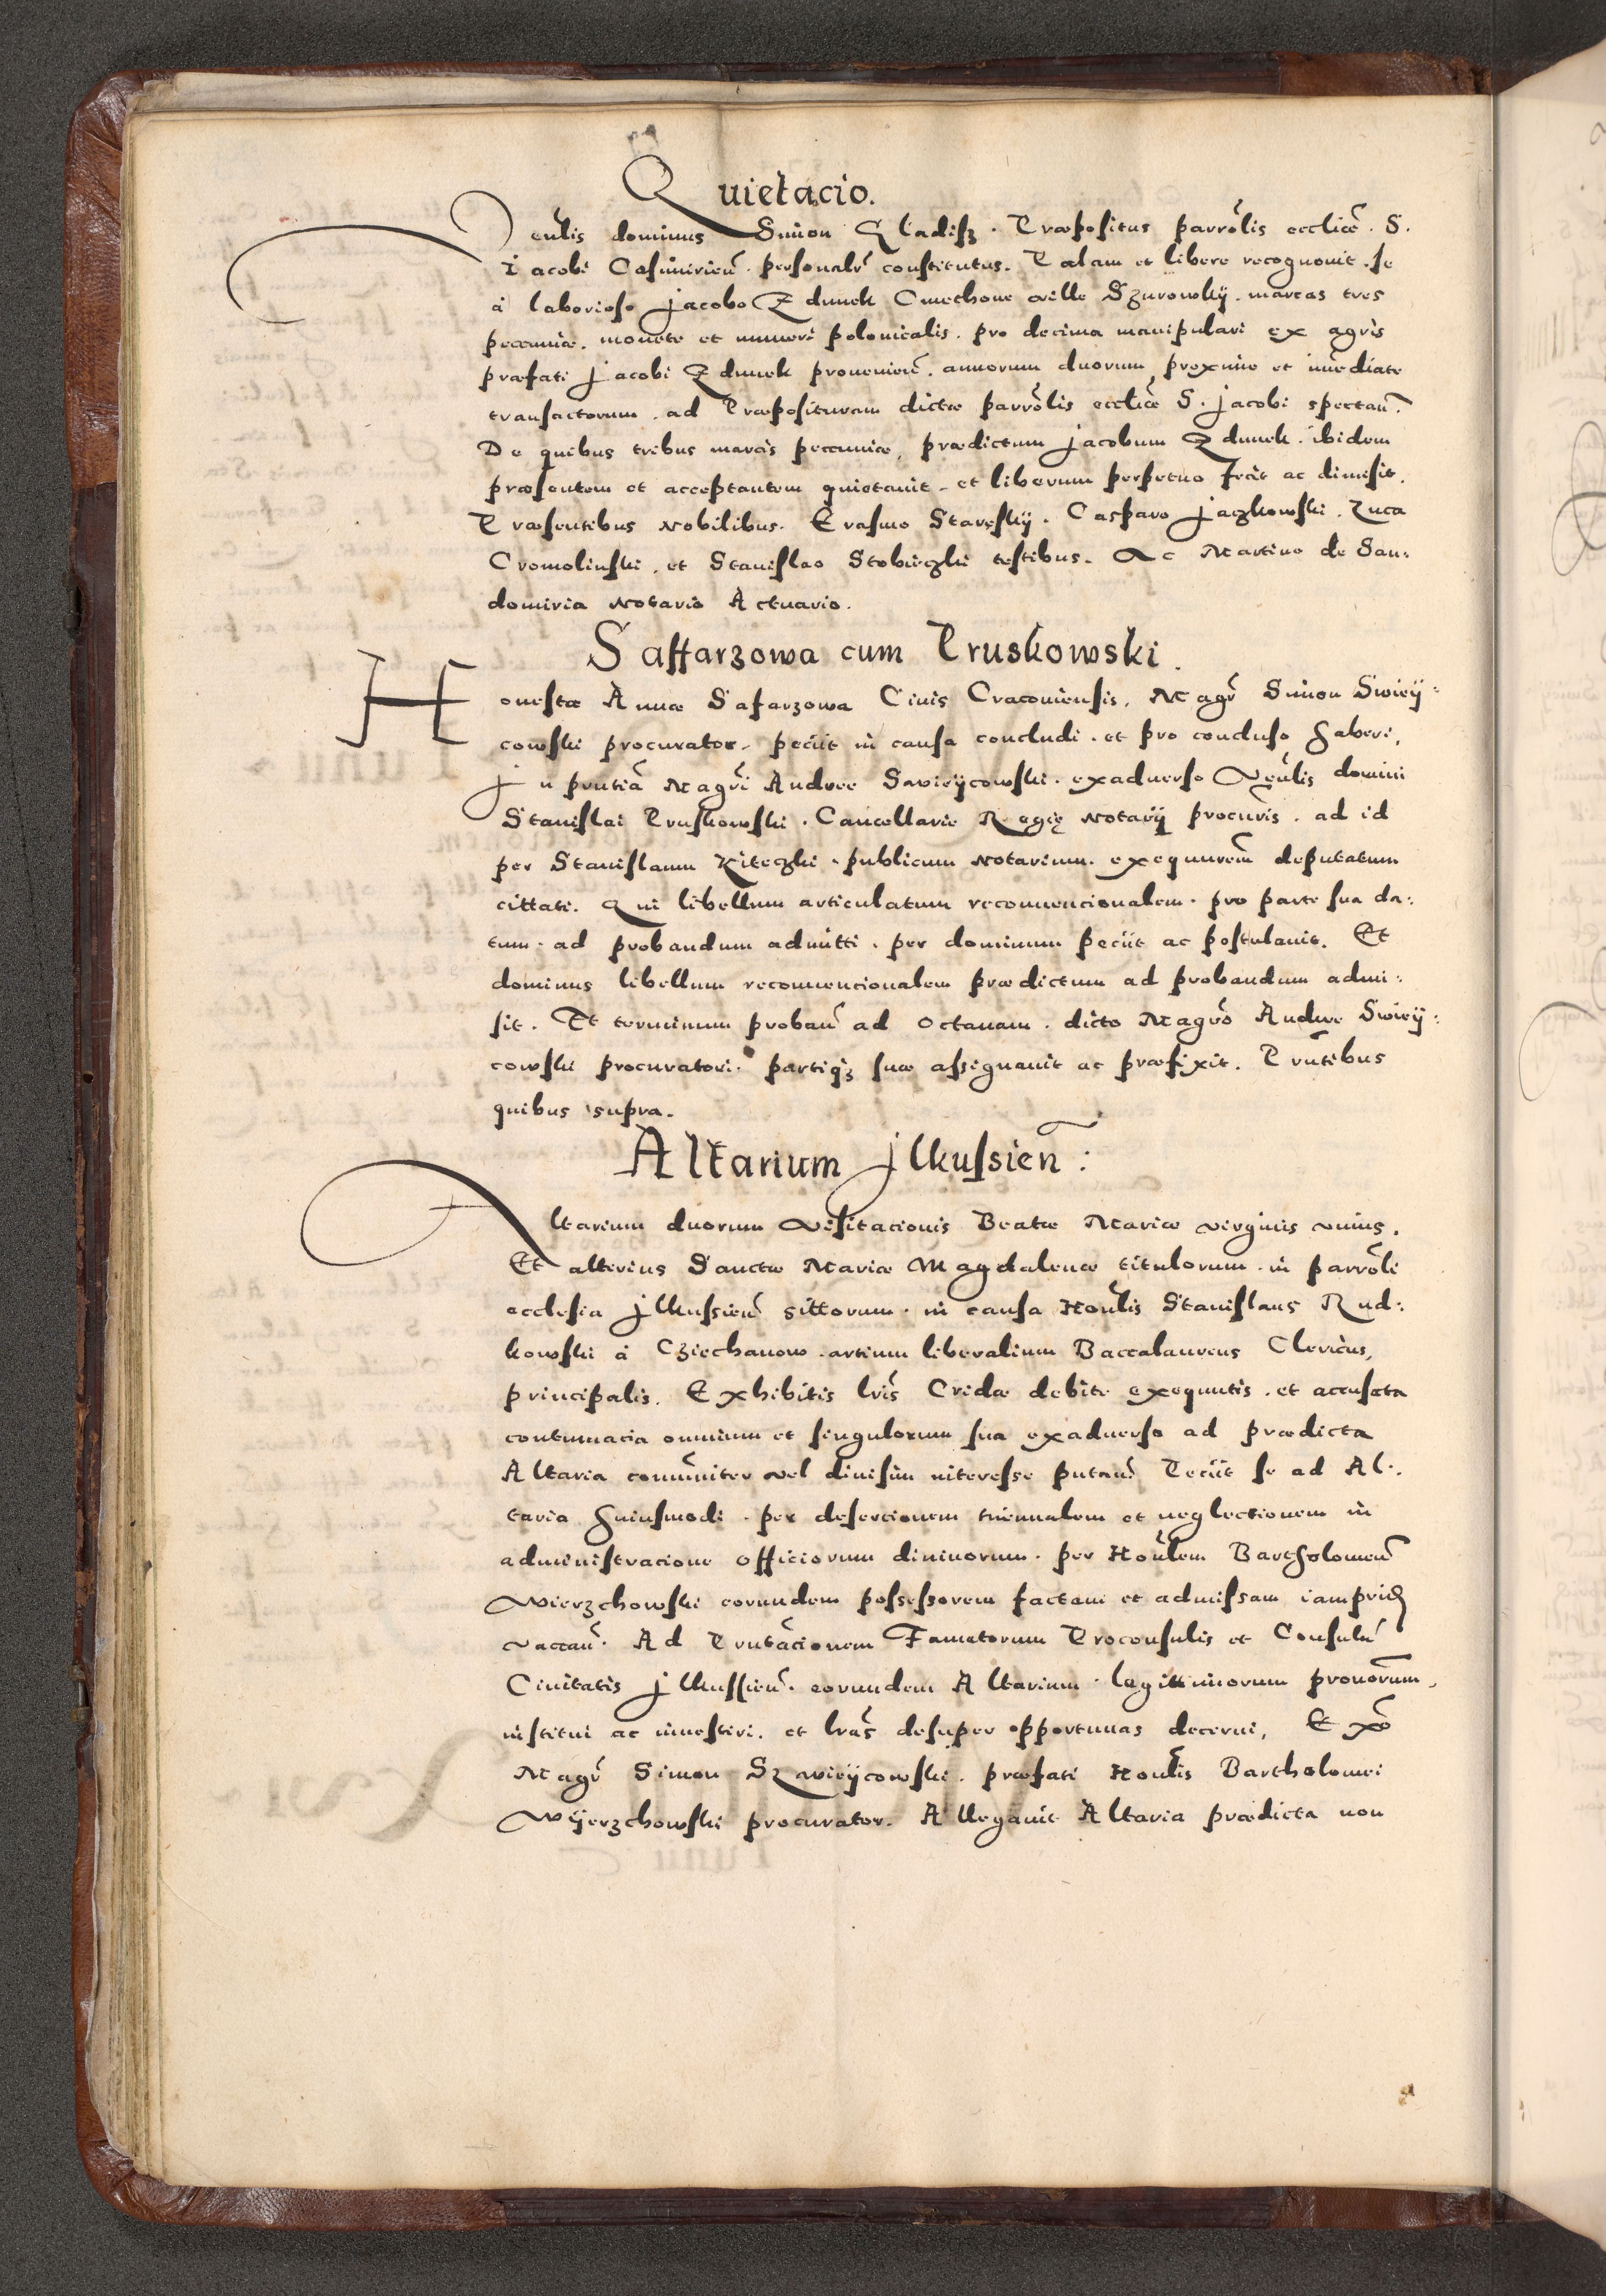 Quietacio.
Venlis dominus Simon Gladisz. Præpositus parrolis eccliæ. S.
Iacobi Casimirien. personalr constitutus. Palam et libere recognouit. se
à laborioso Jacobo Zdunek Cmethone ville Szurowky. marcas tres
pecuniæ. monete et numeri polonicalis. pro decima manipulari ex agris
præfati Jacobi Zdunek prouenien. annorum duorum proxime et immediate
transactorum. ad Præposituram dictæ parrolis eccliæ S. Jacobi spectan.
De quibus tribus marcis pecuniæ, prædictum Jacobum Zdunek. ibidem
præsentem et acceptantem quietauit. et liberum perpetuo fecit ac dimisit.
Præsentibus Nobilibus. Erasmo Staręsky. Casparo Jaczkowski. Luca
Cromolinski. et Stanislao Stobieczki testibus. Ac Martino de San:
domiria Notario Actuario.
Saffarzowa cum Pruskowski.
Honestæ Annæ Safarzowa Ciuis Cracouiensis. Magr Simon Swiey:
cowski procurator. peciit in causa concludi. et pro concluso haberi,
Jn pntia Magri Andree Swieycowski. exaduerso Venlis domini
Stanislai Pruskowski. Cancellarie Regię Notarij procuris. ad id
per Stanislaum Kiteczki. publicum Notarium. exequurem deputatum
cittati. Qui libellum articulatum reconuencionalem. pro parte sua da:
tum. ad probandum admitti. per dominum peciit ac postulauit. Et
dominus libellum reconuencionalem prædictum ad probandum admi:
sit. Et terminum proban ad octauam. dicto Magro Andree Swiey:
cowski procuratori. partiq3 suæ assignauit ac præfixit. Pntibus
quibus supra.
Altarium Jlkussien:
Altarium duorum Visitacionis Beatæ Mariæ virginis vnius.
Et alterius Sanctæ Mariæ Magdalenæ titulorum. in parroli
ecclesia Jlkussien sittorum. in causa Honlis Stanislaus Rud:
kowski à Cziechanow. artium liberalium Baccalaureus Clericus,
principalis. Exhibitis lris Cridæ debite exequutis. et accusata
contumacia omnium et singulorum sua exaduerso ad prædicta
Altaria communiter vel diuisim interesse putan. Peciit se ad Al:
taria huiusmodi. per desercionem triennalem et neglectionem in
administracione officiorum diuinorum. per Honlem Bartholomeu
Wierzchowski eorundem possessorem factam et admissam iamprid
vaccan. Ad Pntacionem Famatorum Proconsulis et Consulu
Ciuitatis Jlkussien. eorundem Altarium. legittimorum pronorum,
institui ac inuestiri. et lras desuper opportunas decerni, Exo
Magr Simon Szwieycowski. præfati Honlis Bartholomei
Wyerzchowski procurator. Allegauit Altaria prædicta non